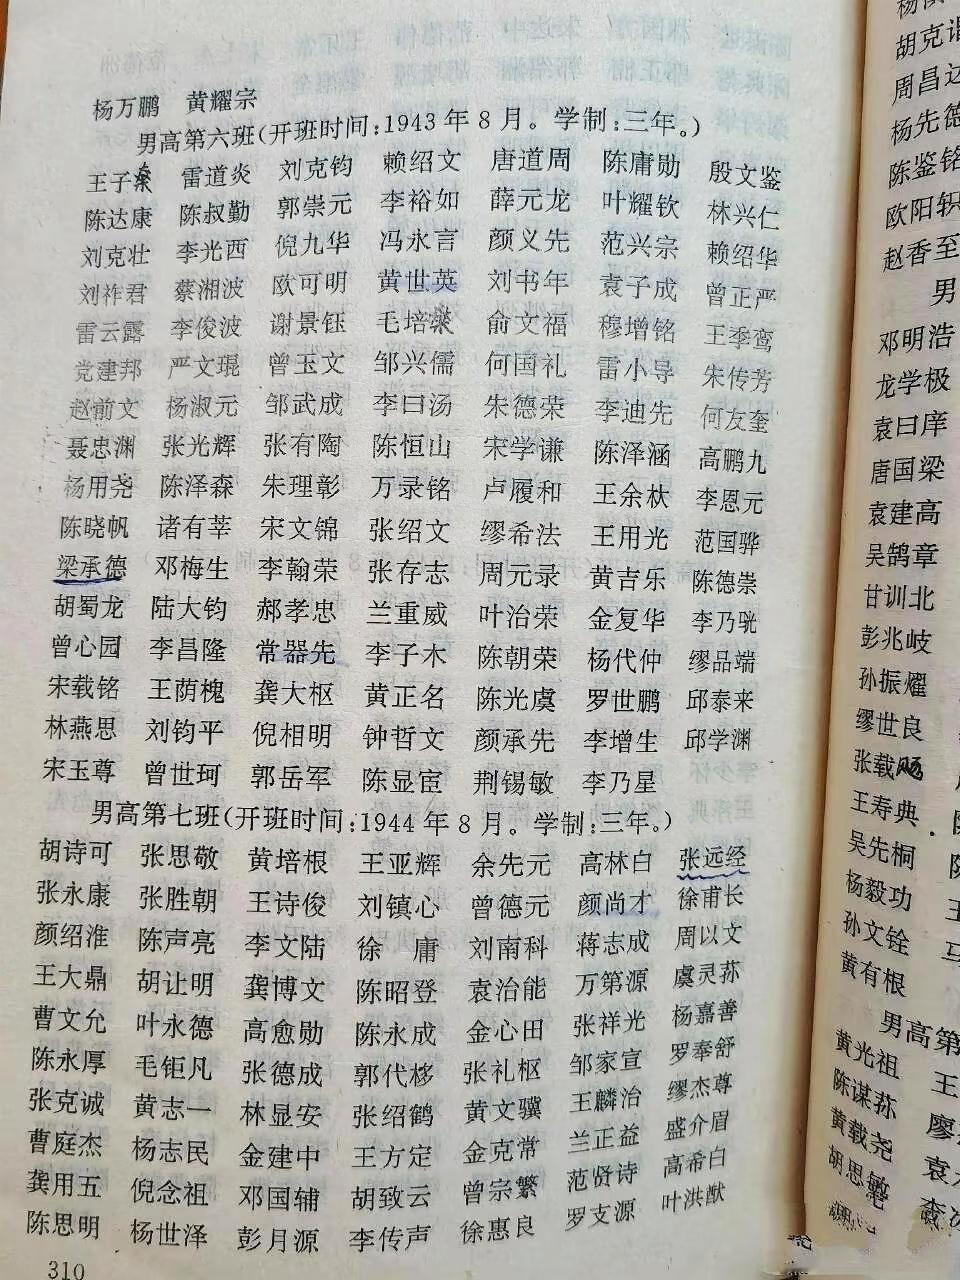 杨万鹏 黄耀宗
男高第六班(开班时间:1943年8月。学制:三年。)
王子 雷道炎 刘克钧 赖绍文 唐道周 陈庸勋 殷文鉴
陈达康 陈叔勤 郭崇元 李裕如 薛元龙 叶耀钦 林兴仁
刘克壮 李光西 倪九华 冯永言 颜义先 范兴宗 赖绍华
刘祚君 蔡湘波 欧可明 黄世英 刘书年 袁子成 曾正严
雷云露 李俊波 谢景钰 毛培 俞文福 穆增铭 王季鸾
党建邦 严文琨 曾玉文 邹兴儒 何国礼 雷小导 朱传芳
赵前文 杨淑元 邹武成 李曰汤 朱德荣 李迪先 何友奎
聂忠渊 张光辉 张有陶 陈恒山 宋学谦 陈泽涵 高鹏九
杨用尧 陈泽森 朱理彰 万录铭 卢履和 王余杕 李恩元
陈晓帆 诸有莘 宋文锦 张绍文 缪希法 王用光 范国骅
梁承德 邓梅生 李翰荣 张存志 周元录 黄吉乐 陈德崇
胡蜀龙 陆大钧 郝孝忠 兰重威 叶治荣 金复华 李乃驰
曾心园 李昌隆 常器先 李子木 陈朝荣 杨代仲 缪品端
宋载铭 王荫槐 龚大枢 黄正名 陈光虞 罗世鹏 邱泰来
林燕思 刘钧平 倪相明 钟哲文 颜承先 李增生 邱学渊
宋玉尊 曾世珂 郭岳军 陈显宦 荆锡敏 李乃星
男高第七班(开班时间:1944年8月。学制:三年。)
胡诗可 张思敬 黄培根 王亚辉 余先元 高林白 张远经
张永康 张胜朝 王诗俊 刘镇心 曾德元 颜尚才 徐甫长
颜绍淮 陈声亮 李文陆 徐 庸 刘南科 蒋志成 周以文
王大鼎 胡让明 龚博文 陈昭登 袁治能 万第源 虞灵荪
曹文允 叶永德 高愈勋 陈永成 金心田 张祥光 杨嘉善
陈永厚 毛钜凡 张德成 郭代栘 张礼枢 邹家宣 罗奉舒
张克诚 黄志一 林显安 张绍鹤 黄文骥 王麟治 缪杰尊
曹庭杰 杨志民 金建中 王方定 金克常 兰正益 盛介眉
龚用五 倪念祖 邓国辅 胡致云 曾宗繁 范贤诗 高希白
陈思明 杨世泽 彭月源 李传声 徐惠良 罗支源 叶洪猷
310
胡克
周昌达
杨先德
陈鉴铭
欧阳轵
赵香至
男
邓明浩
龙学极
袁曰庠
唐国梁
袁建高
吴鹄章
甘训北
彭兆岐
孙振燿
缪世良
张载飏
王寿典
吴先桐
杨毅功
孙文铨
黄有根
男高第
黄光祖 王
陈谋荪 廖
黄载尧 袁
胡思 李